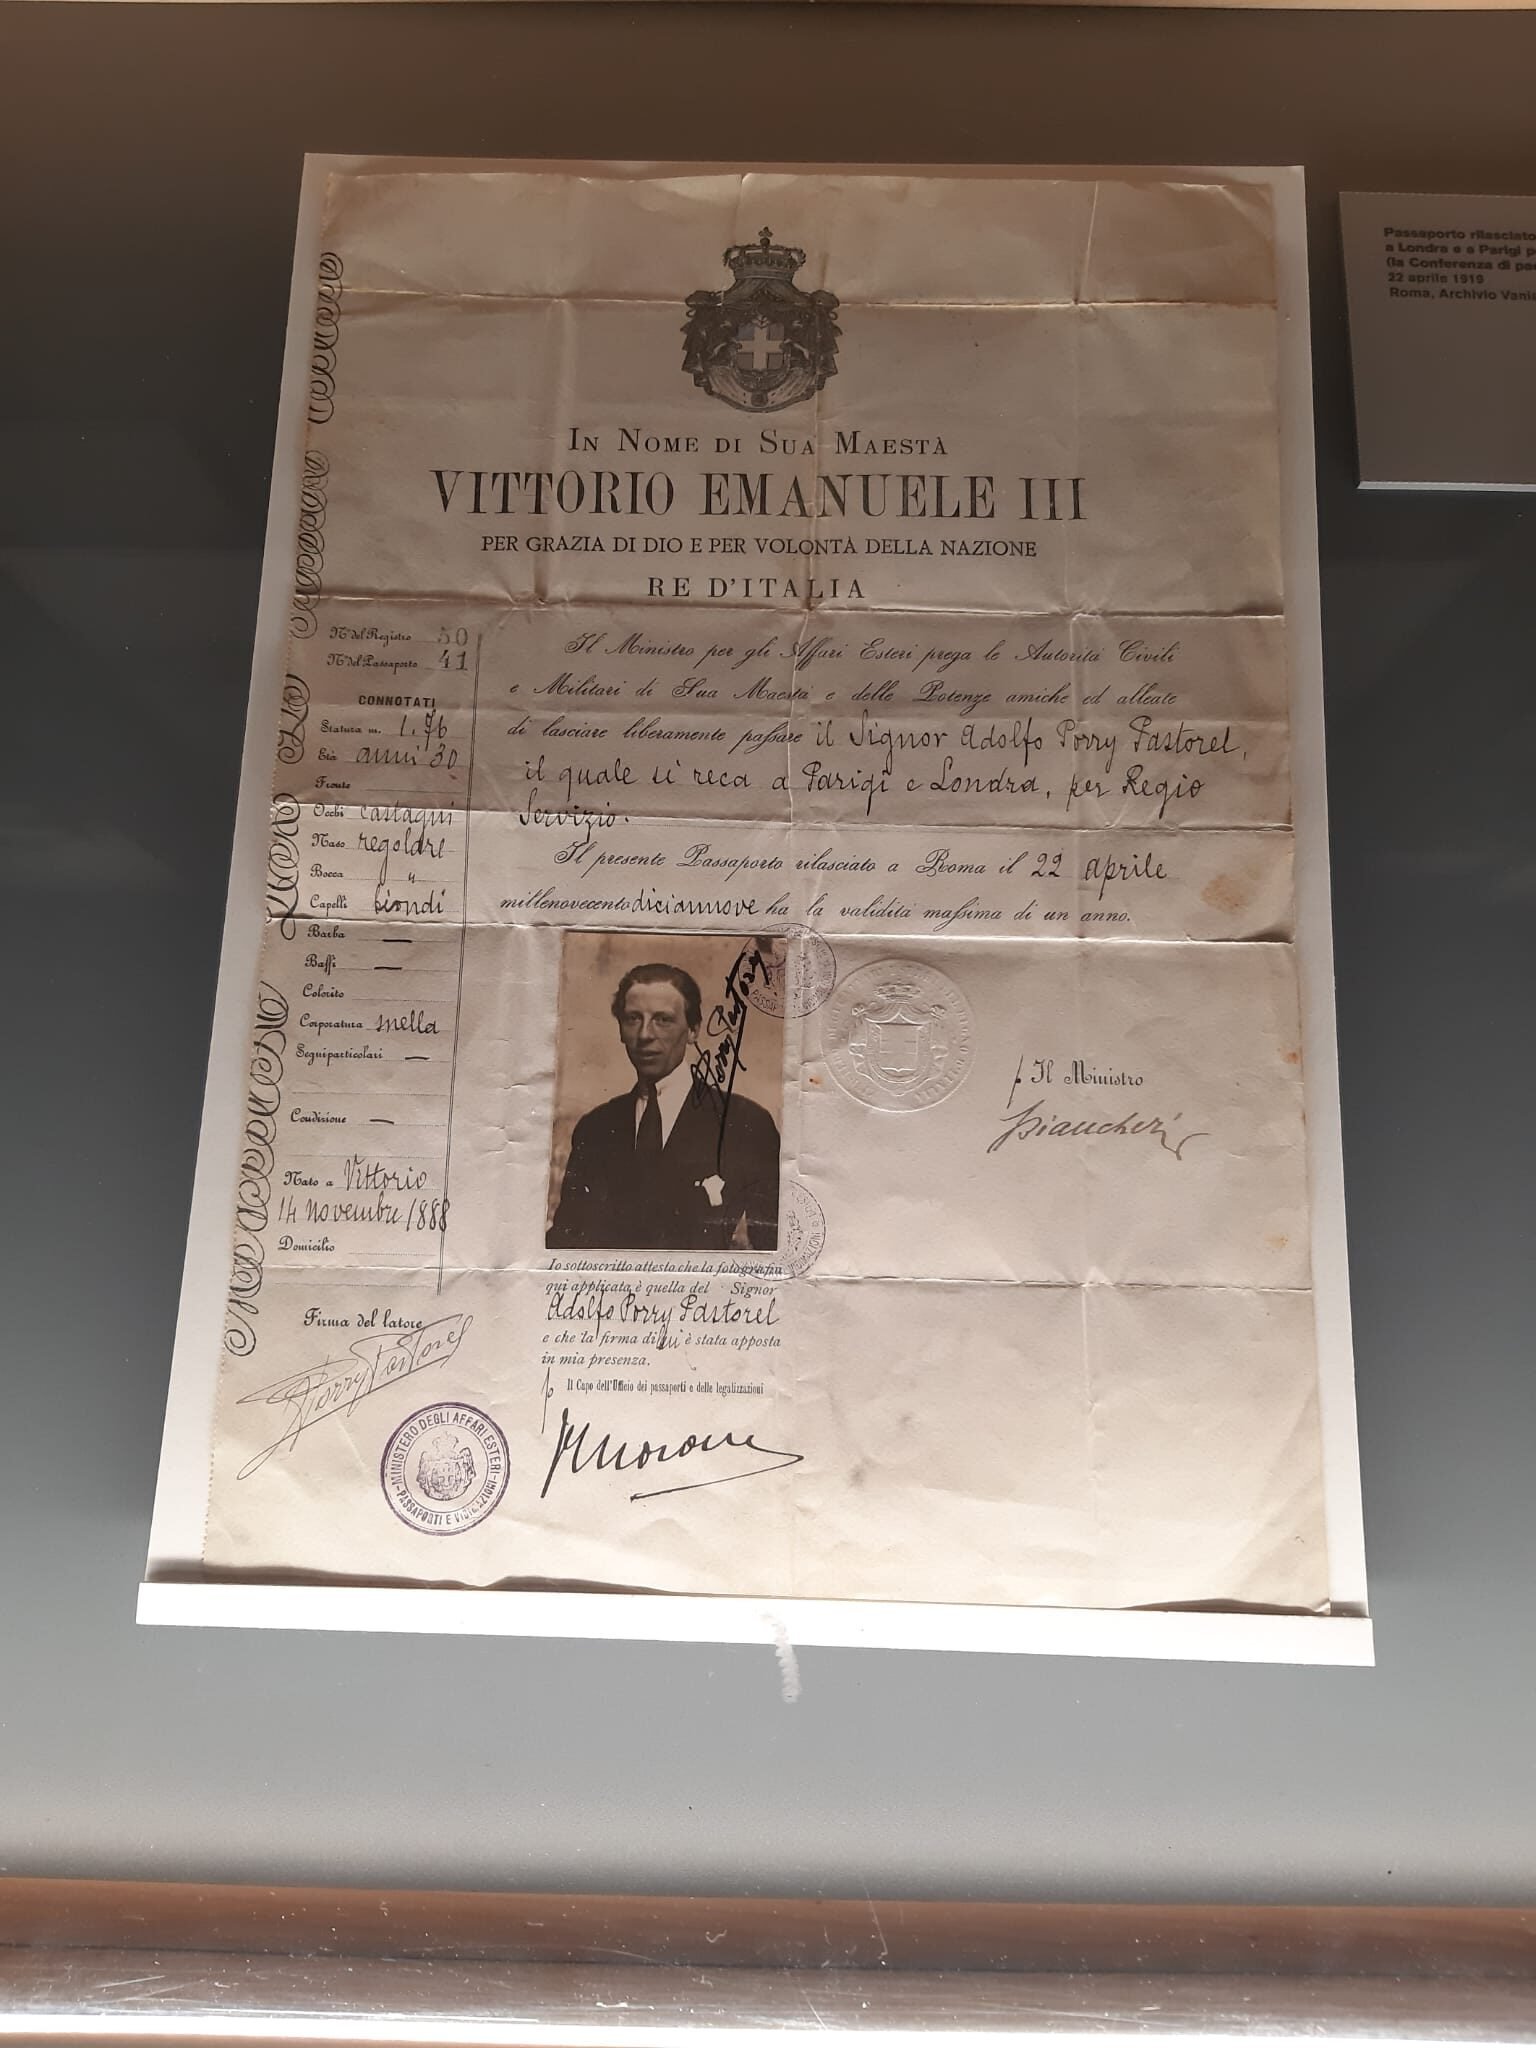 In Nome di Sua Maestà
VITTORIO EMANUELE III
PER GRAZIA DI DIO E PER VOLONTÀ DELLA NAZIONE
RE D'ITALIA
N° del Registro 50
N° del Passaporto 41
CONNOTATI
Statura m. 1.76
Età anni 30
Fronte
Occhi castagni
Naso regolare
Bocca "
Capelli biondi
Barba —
Baffi —
Colorito
Corporatura snella
Segni particolari —
Condizione —
Nato a Vittorio
14 novembre 1888
Domicilio
Firma del latore
Porry Pastorel
MINISTERO DEGLI AFFARI ESTERI
PASSAPORTI E
Il Ministro per gli Affari Esteri prega le Autorità Civili
e Militari di Sua Maestà e delle Potenze amiche ed alleate
di lasciare liberamente passare il Signor Adolfo Porry Pastorel,
il quale si reca a Parigi e Londra, per Regio
Servizio.
Il presente Passaporto rilasciato a Roma il 22 aprile
millenovecento diciannove ha la validità massima di un anno.
Porry Pastorel
p Il Ministro
Biancheri
Io sottoscritto attesto che la fotografia
qui applicata è quella del Signor
Adolfo Porry Pastorel
e che la firma di lui è stata apposta
in mia presenza.
p Il Capo dell'Ufficio dei passaporti e delle legalizzazioni
Passaporto rilasciato
a Londra e a Parigi
(la Conferenza di
22 aprile 1919
Roma, Archivio